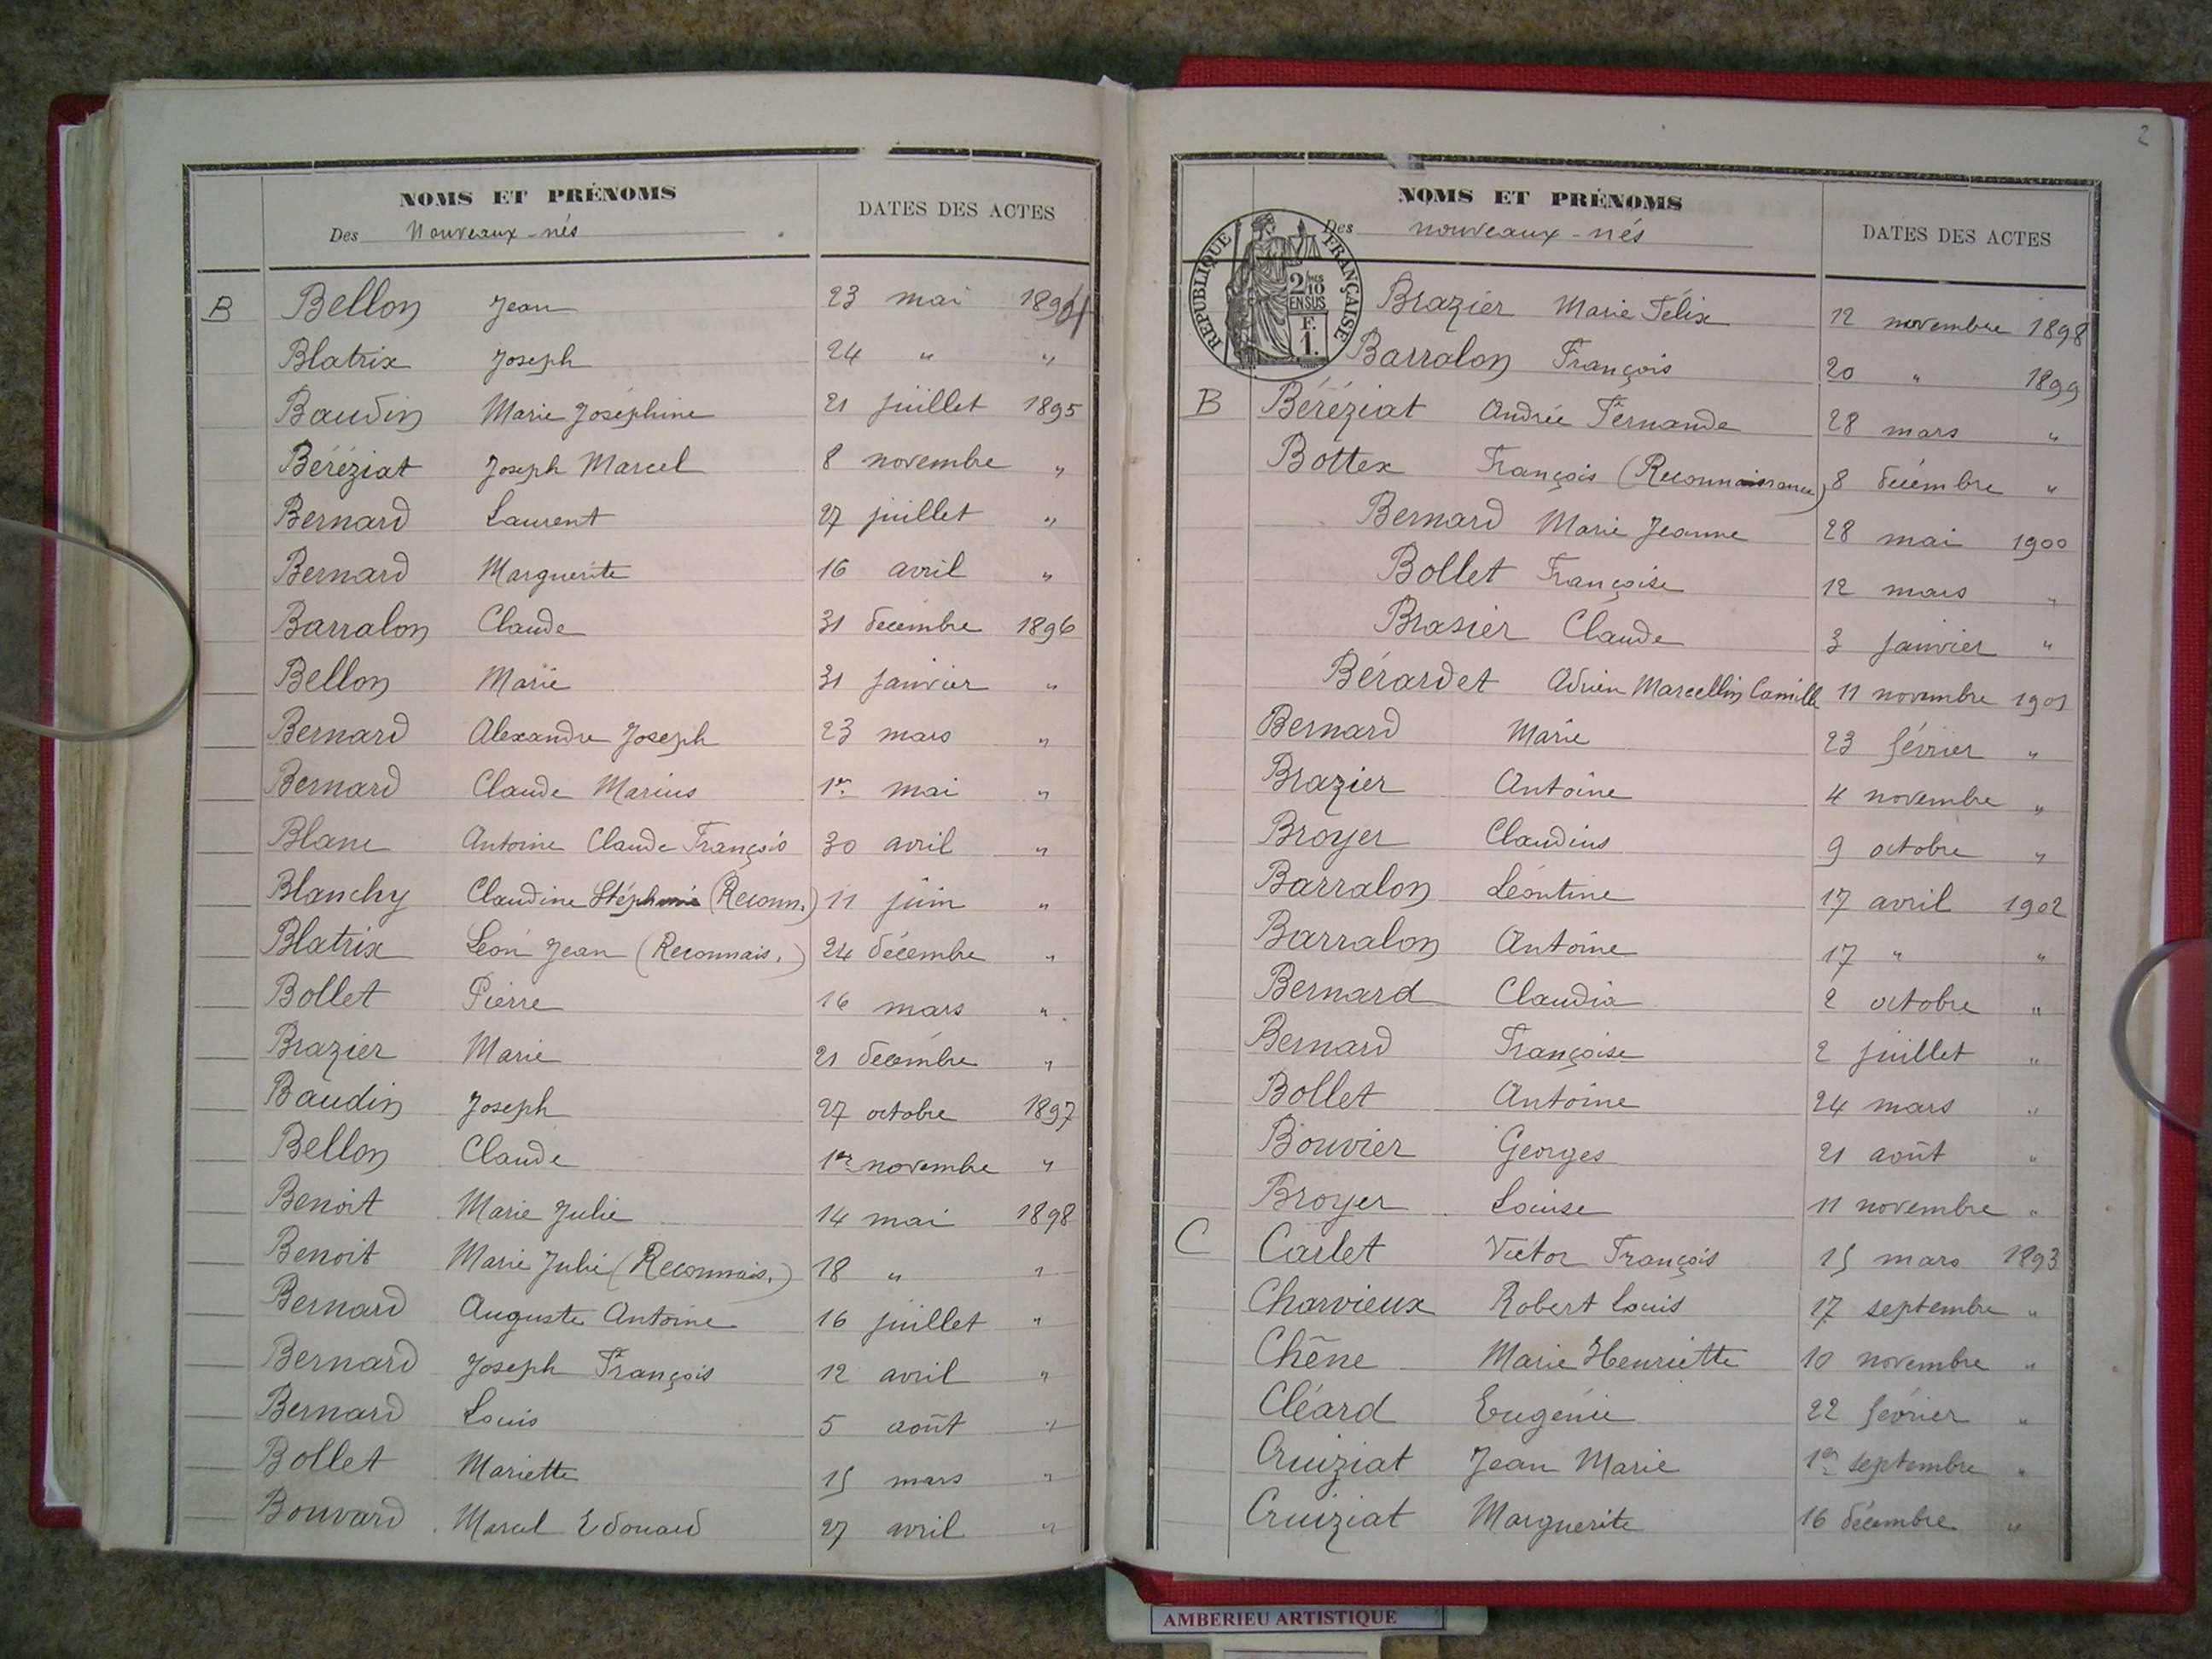 NOMS ET PRÉNOMS DATES DES ACTES
Des Nouveaux-nés
B Bellon Jean 23 mai 1894
Blatrix Joseph 24 " "
Baudin Marie Joséphine 21 juillet 1895
Béréziat Joseph Marcel 8 novembre "
Bernard Laurent 27 juillet "
Bernard Marguerite 16 avril "
Barralon Claude 31 décembre 1896
Bellon Marie 31 janvier "
Bernard Alexandre Joseph 23 mars "
Bernard Claude Marius 1er mai "
Blanc Antoine Claude François 30 avril "
Blanchy Claudine Stéphanie (Reconn.) 11 juin "
Blatrix Léon Jean (Reconnais.) 24 décembre "
Bollet Pierre 16 mars "
Brazier Marie 21 décembre "
Baudin Joseph 27 octobre 1897
Bellon Claude 1er novembre "
Benoit Marie Julie 14 mai 1898
Benoit Marie Julie (Reconnais.) 18 " "
Bernard Auguste Antoine 16 juillet "
Bernard Joseph François 12 avril "
Bernard Louis 5 août "
Bollet Mariette 15 mars "
Bouvard Marcel Edouard 27 avril "
2
NOMS ET PRÉNOMS DATES DES ACTES
Des nouveaux-nés
RÉPUBLIQUE FRANÇAISE
2/10 MES
EN SUS
F.
1.
Brazier Marie Félix 12 novembre 1898
Barralon François 20 " 1899
B Béréziat Andrée Fernande 28 mars "
Bottex François (Reconnaissance) 8 décembre "
Bernard Marie Jeanne 28 mai 1900
Bollet Françoise 12 mars "
Brasier Claude 3 janvier "
Bérardet Adrien Marcellin Camille 11 novembre 1901
Bernard Marie 23 février "
Brazier Antoine 4 novembre "
Broyer Claudius 9 octobre "
Barralon Léontine 17 avril 1902
Barralon Antoine 17 " "
Bernard Claudia 2 octobre "
Bernard Françoise 2 juillet "
Bollet Antoine 24 mars "
Bouvier Georges 21 août "
Broyer Louise 11 novembre "
C Carlet Victor François 15 mars 1893
Charvieux Robert Louis 17 septembre "
Chêne Marie Henriette 10 novembre "
Cléard Eugénie 22 février "
Cruiziat Jean Marie 1er septembre "
Cruiziat Marguerite 16 décembre "
AMBERIEU ARTISTIQUE